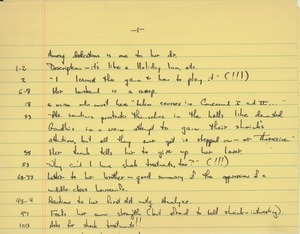 -1-
Among dedications is one to her dr.
1-2 Description - it's like a Holiday Inn etc.
2 "I learned the game & how to play it" (!!!)
6-8 Her husband is a creep.
18 a nurse who must have "taken courses in Concerned I and II..."
33 "The sentries protected themselves in the halls like demented Gandhis in a crazy attempt to gain their shrink's attention, but all they ever got is stepped on - or Thorazine"
38 Her shrink tells her to give up her lover.
53 "Why can't I have shock treatments, too?" (!!!)
68-73 Letter to her brother - good summary of the oppression of a middle class housewife.
93-4 Reactions to her first
97 Feels her own strengths (but afraid to tell shrink - interesting).
103 Asks for shock treatments!!